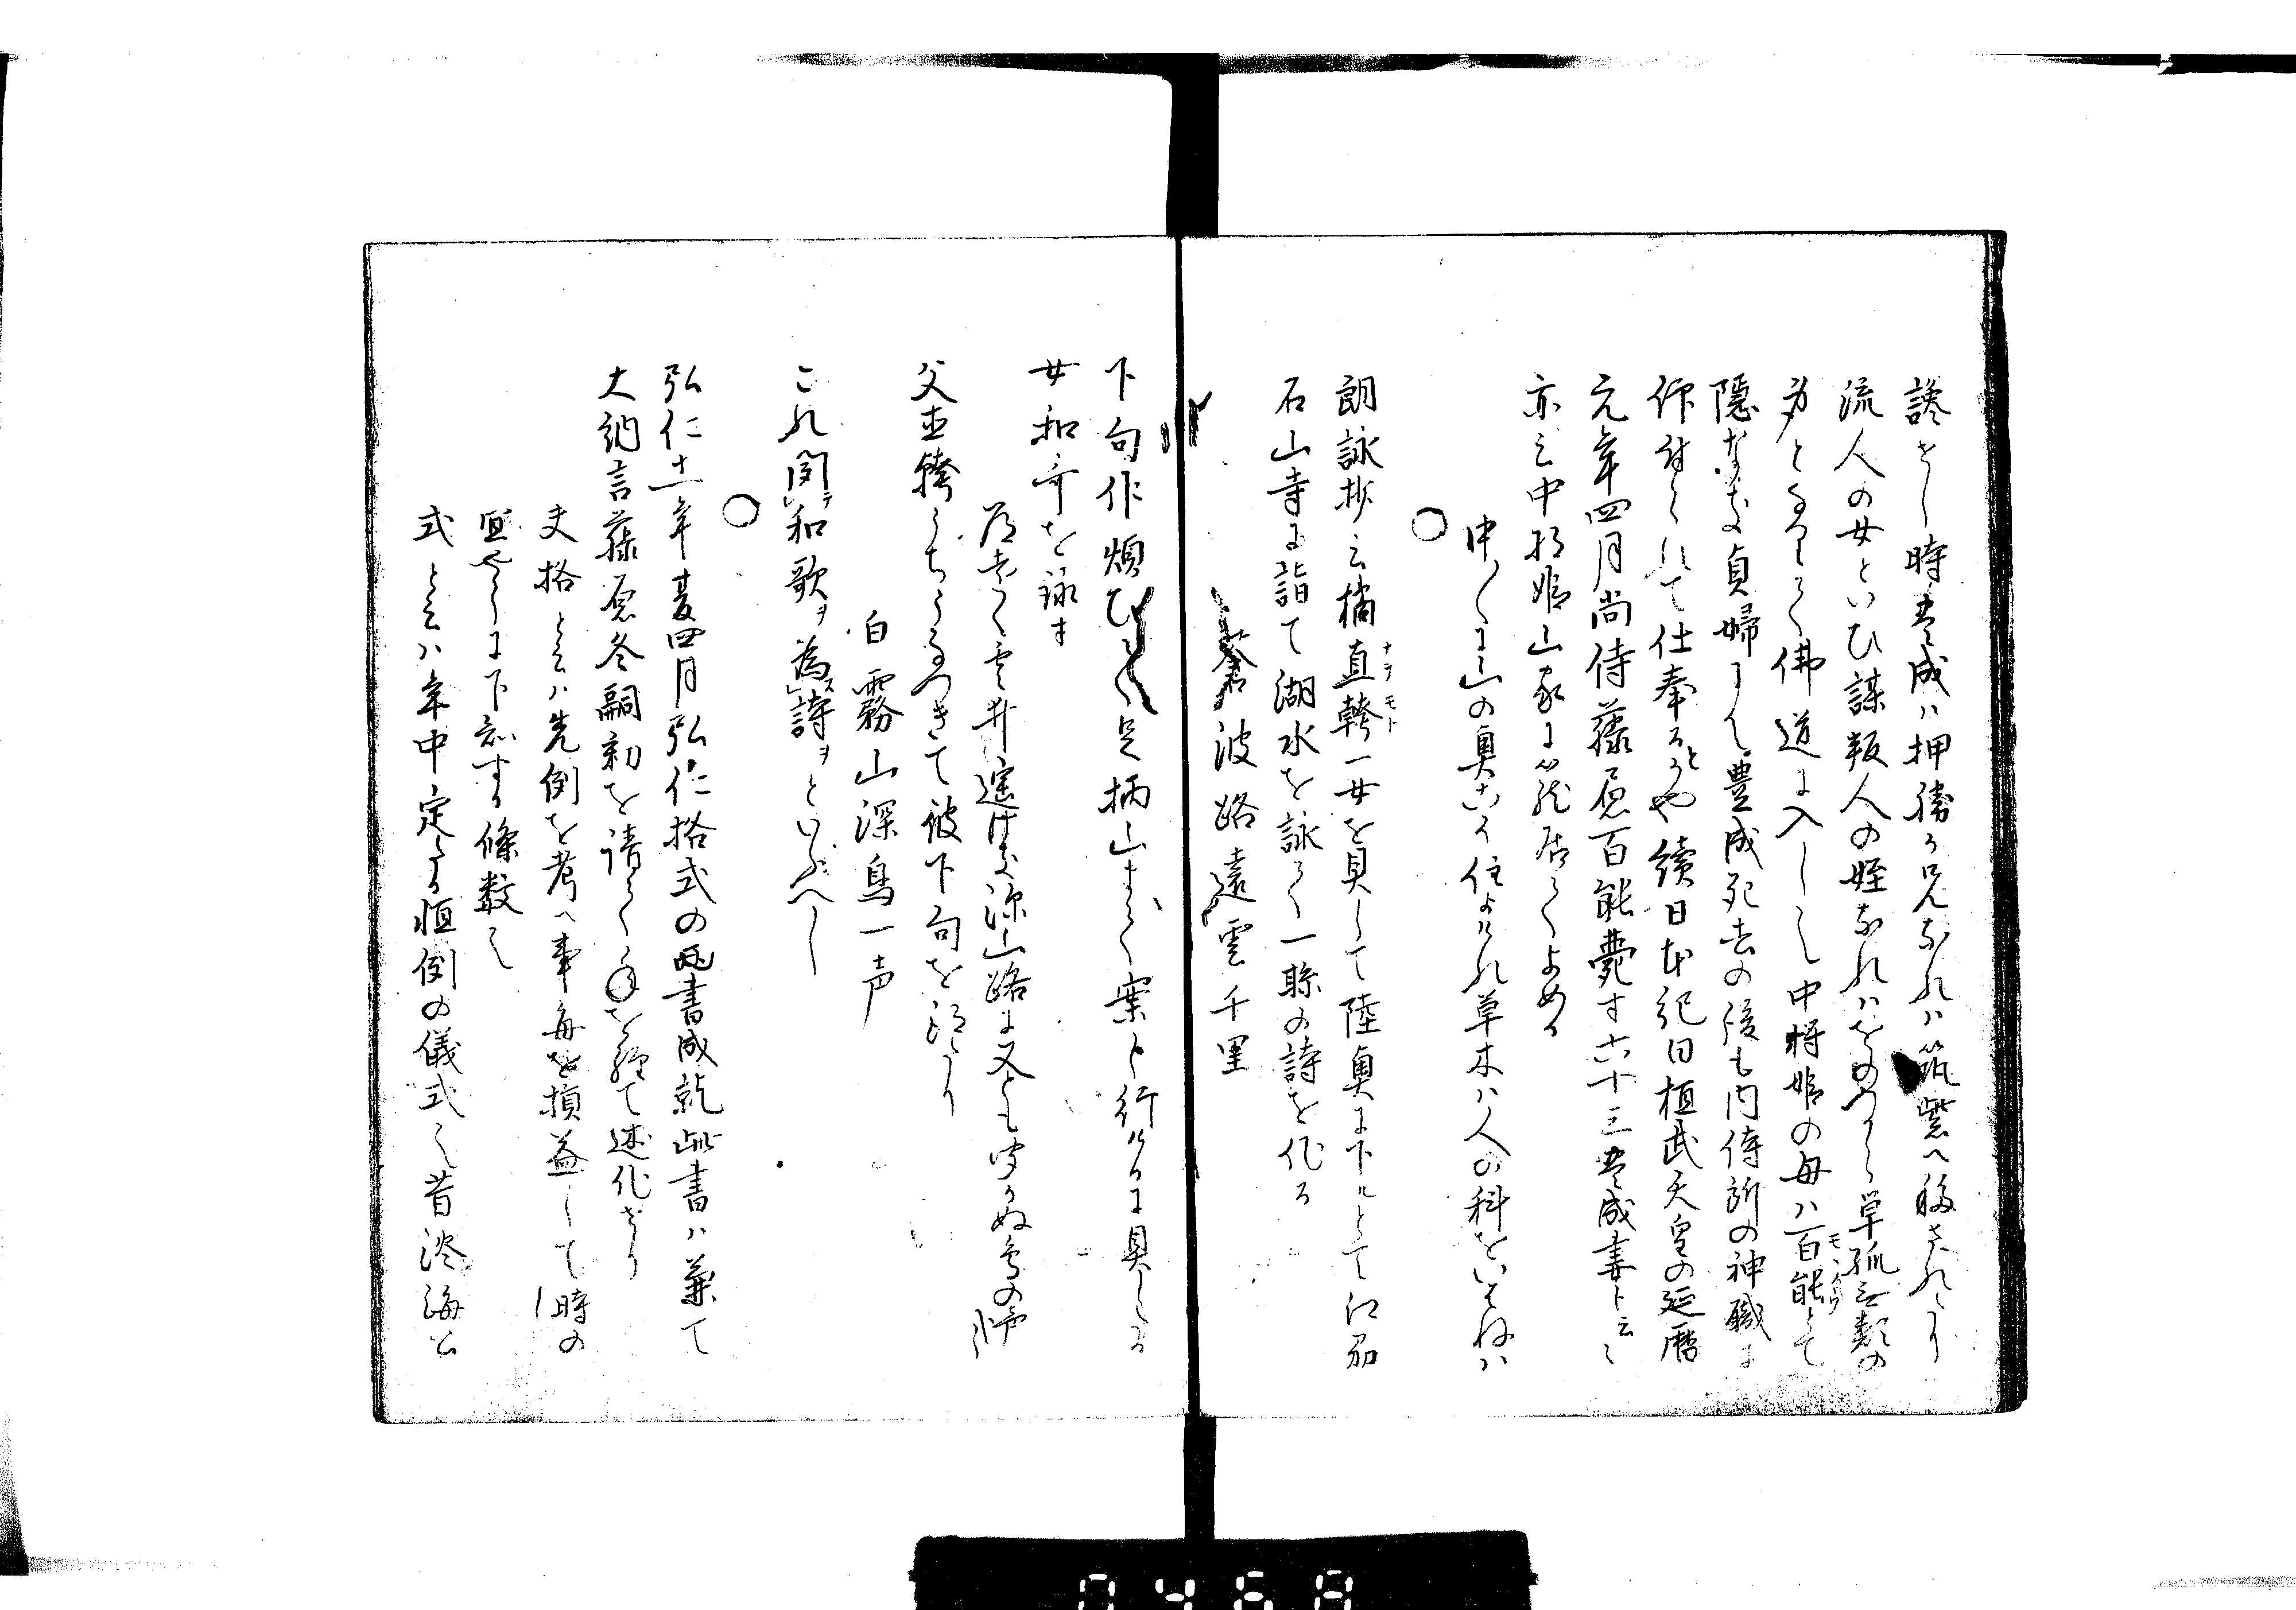 讒せし時豊成ハ押勝か兄なれハ筑紫へ移されたり
流人の女といひ謀叛人の姪なれハをのつから単孤無類の
身となりて佛道に入しと也中将姫の母ハ百能とて
隠なき貞婦にて豊成死去の後も内侍所の神職に
仰付られて仕奉るとかや續日本紀曰桓武天皇の延暦
元年四月尚侍藤原百能薨す六十三豊成妻ト云々
亦云中将姫山家に籠居てよめる
中〱に山の奥こそ住よけれ草木ハ人の科をいはねハ
○
朗詠抄云橘直幹一女を具して陸奥に下ルとて江州
石山寺に詣て湖水を詠て一聯の詩を作る
蒼波路遠雲千里
下句作煩ひて足柄山まて案ト行けるに具したる
女和哥を詠す
都出て雲井遥けき深山路に又とも聞かぬ鳥の一声
父直幹うちうなつきて彼下句を得たり
白霧山深鳥一声
これ聞テ和歌ヲ為ス詩ヲといふへし
○
弘仁十一年夏四月弘仁格式の両書成就此書ハ兼て
大納言藤原冬嗣勅を請て年を経て述作せり
夫格と云ハ先例を考へ事毎を損益して時の
宜やうに下知する條数也
式と云ハ年中定たる恒例の儀式也昔淡海公